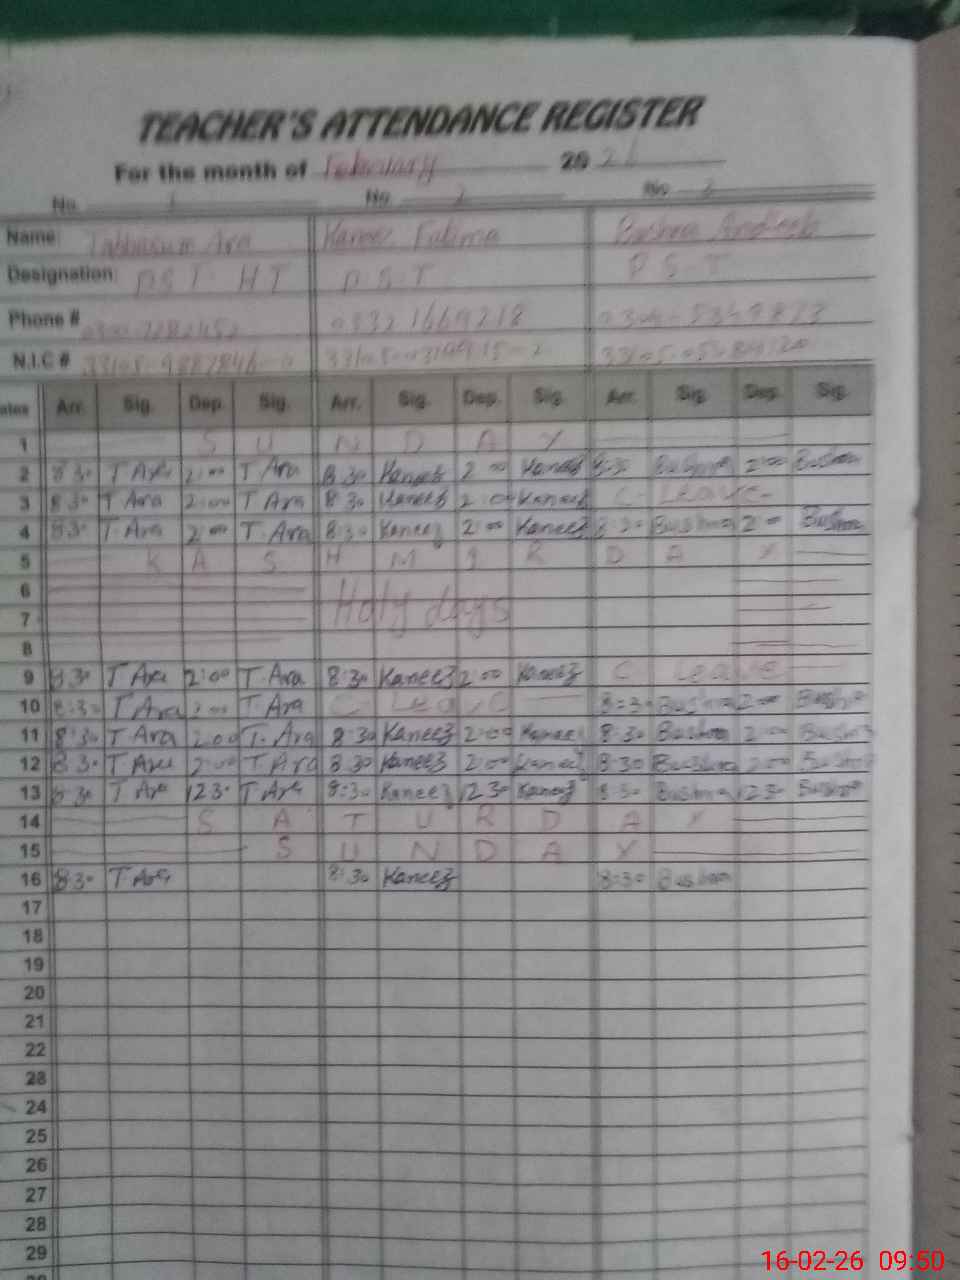 TEACHER'S ATTENDANCE REGISTER
For the month of February 2026
No. 1 No 2 No 3
Name: Tabbasum Ara Kaneez Fatima Bushra Andleeb
Designation: PST HT P.S.T P S T
Phone # 0332 1669218
N.I.C #
Dates Arr. Sig. Dep. Sig. Arr. Sig. Dep. Sig. Arr. Sig. Dep. Sig.
1 S U N D A Y
2 8:30 T Ara 2:00 T Ara 8:30 Kaneez 2:00 Kaneez 8:30 Bushra 2:00 Bushra
3 8:30 T Ara 2:00 T Ara 8:30 Kaneez 2:00 Kaneez C. Leave
4 8:30 T. Ara 2:00 T. Ara 8:30 Kaneez 2:00 Kaneez 8:30 Bushra 2:00 Bushra
5 K A S H M I R D A Y
6
7 Holy days
8
9 8:30 T Ara 2:00 T. Ara 8:30 Kaneez 2:00 Kaneez C Leave
10 8:30 T Ara 2:00 T. Ara C Leave 8:30 Bushra 2:00 Bushra
11 8:30 T Ara 2:00 T. Ara 8:30 Kaneez 2:00 Kaneez 8:30 Bushra 2:00 Bushra
12 8:30 T Ara 2:00 T Ara 8:30 Kaneez 2:00 Kaneez 8:30 Bushra 2:00 Bushra
13 8:30 T Ara 12:30 T Ara 8:30 Kaneez 12:30 Kaneez 8:30 Bushra 12:30 Bushra
14 S A T U R D A Y
15 S U N D A Y
16 8:30 T Ara 8:30 Kaneez 8:30 Bushra
17
18
19
20
21
22
23
24
25
26
27
28
29
16-02-26 09:50